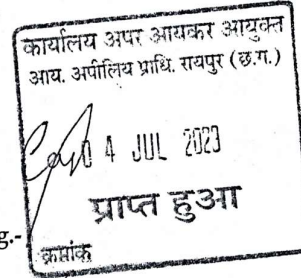 कार्यालय अपर आयकर आयुक्त
आय. अपीलिय प्राधि. रायपुर (छ.ग.)
0 4 JUL 2023
प्राप्त हुआ
g.-
क्रमांक